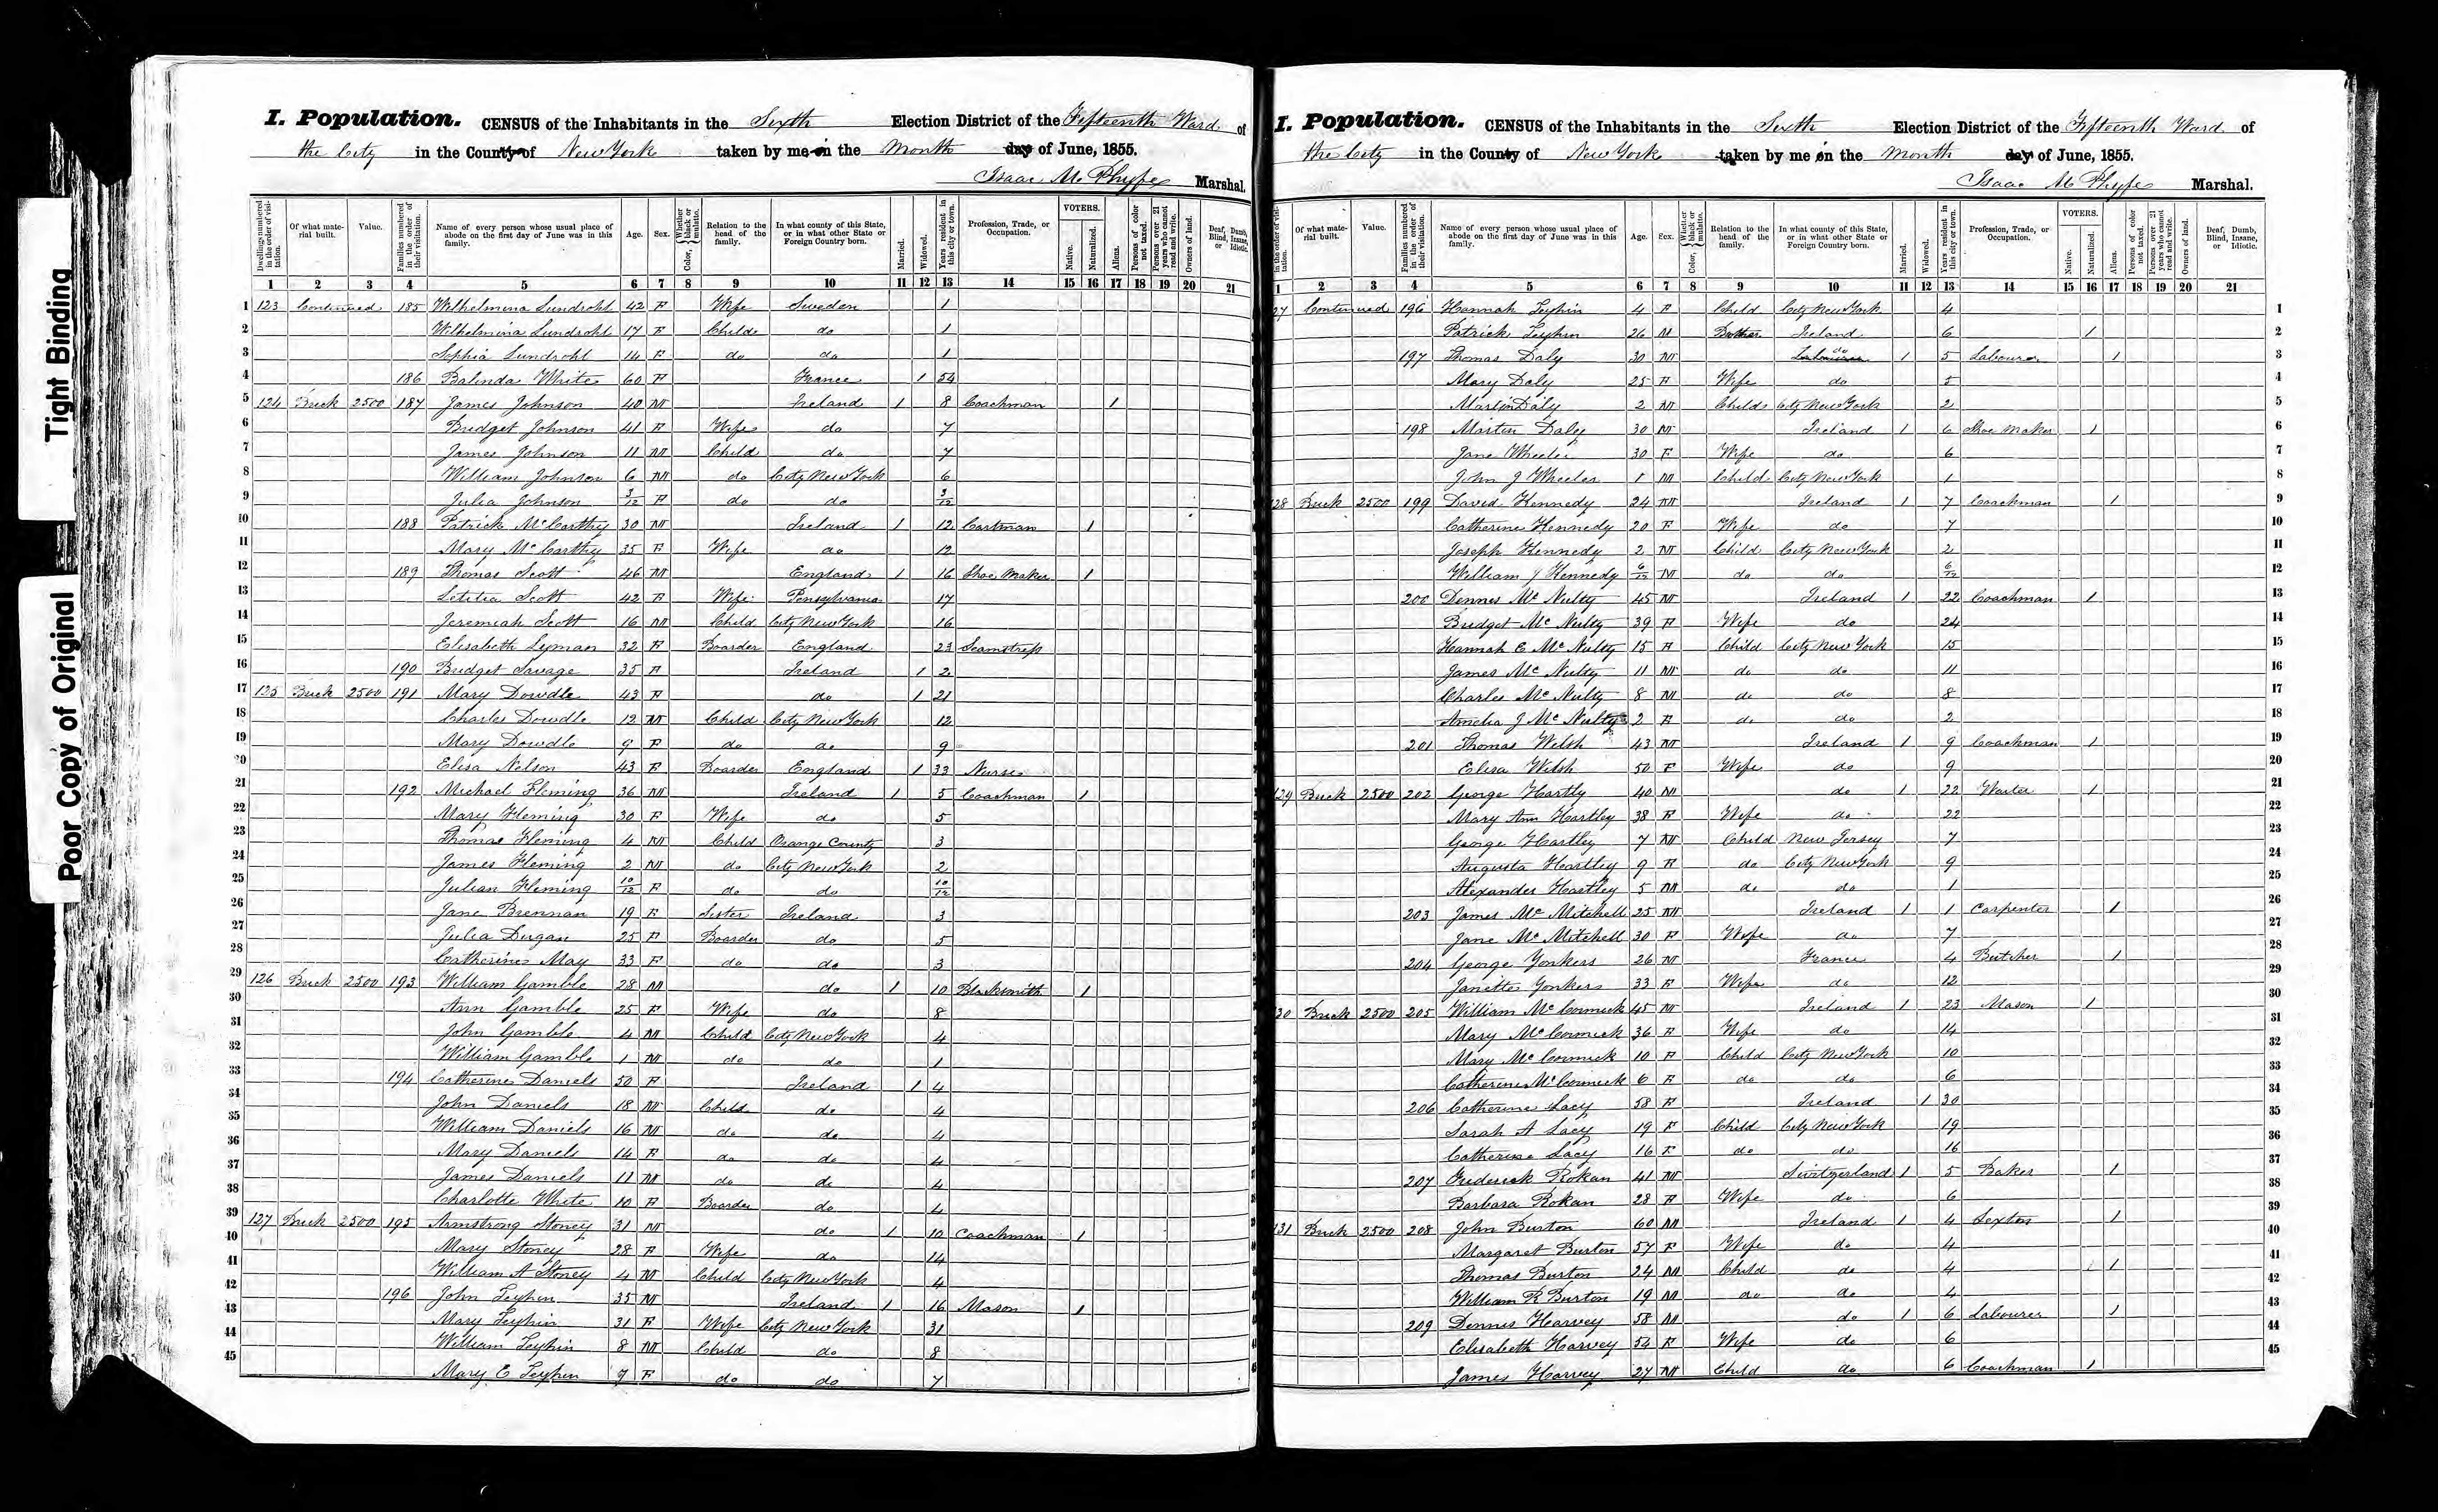 Tight Binding
Poor Copy of Original
I. Population. CENSUS of the Inhabitants in the Sixth Election District of the Fifteenth Ward of
the City in the County of New York taken by me in the Month day of June, 1855.
Isaac M. Phyfe Marshal.
Dwellings numbered in the order of visitation. Of what material built. Value. Families numbered in the order of their visitation. Name of every person whose usual place of abode on the first day of June was in this family. Age. Sex. Color, Whether black or mulatto. Relation to the head of the family. In what county of this State, or in what other State or Foreign Country born. Married. Widowed. Years resident in this city or town. Profession, Trade, or Occupation. VOTERS. Native. Naturalized. Aliens. Persons of color not taxed. Persons over 21 years who cannot read and write. Owners of land. Deaf, Dumb, Blind, Insane, or Idiotic.
1 2 3 4 5 6 7 8 9 10 11 12 13 14 15 16 17 18 19 20 21
1 123 Continued 185 Wilhelmina Sundrohl 42 F Wife Sweden 1
2 Wilhelmina Sundrohl 17 F Child do 1
3 Sophia Sundrohl 14 F do do 1
4 186 Balinda White 60 F France 1 54
5 124 Brick 2500 187 James Johnson 40 M Ireland 1 8 Coachman 1
6 Bridget Johnson 41 F Wife do 7
7 James Johnson 11 M Child do 7
8 William Johnson 6 M do City New York 6
9 Julia Johnson 3/12 F do do 3/12
10 188 Patrick McCarthy 30 M Ireland 1 12 Cartman 1
11 Mary McCarthy 35 F Wife do 12
12 189 Thomas Scott 46 M England 1 16 Shoe Maker 1
13 Letitia Scott 42 F Wife Pensylvania 17
14 Jeremiah Scott 16 M Child City New York 16
15 Elisabeth Lyman 32 F Boarder England 23 Seamstress
16 190 Bridget Savage 35 F Ireland 1 2
17 125 Brick 2500 191 Mary Dowdle 43 F do 1 21
18 Charles Dowdle 12 M Child City New York 12
19 Mary Dowdle 9 F do do 9
20 Elisa Nelson 43 F Boarder England 1 33 Nurse
21 192 Michael Fleming 36 M Ireland 1 5 Coachman 1
22 Mary Fleming 30 F Wife do 5
23 Thomas Fleming 4 M Child Orange County 3
24 James Fleming 2 M do City New York 2
25 Julian Fleming 10/12 F do do 10/12
26 Jane Brennan 19 F Sister Ireland 3
27 Julia Dugan 25 F Boarder do 5
28 Catherine May 33 F do do 3
29 126 Brick 2500 193 William Gamble 28 M do 1 10 Blacksmith 1
30 Ann Gamble 25 F Wife do 8
31 John Gamble 4 M Child City New York 4
32 William Gamble 1 M do do 1
33 194 Catherine Daniels 50 F Ireland 1 4
34 John Daniels 18 M Child do 4
35 William Daniels 16 M do do 4
36 Mary Daniels 14 F do do 4
37 James Daniels 11 M do do 4
38 Charlotte White 10 F Boarder do 4
39 127 Brick 2500 195 Armstrong Stoney 31 M do 1 10 Coachman 1
40 Mary Stoney 28 F Wife do 14
41 William A Stoney 4 M Child City New York 4
42 196 John Leyhin 35 M Ireland 1 16 Mason 1
43 Mary Leyhin 31 F Wife City New York 31
44 William Leyhin 8 M Child do 8
45 Mary E Leyhin 7 F do do 7
I. Population. CENSUS of the Inhabitants in the Sixth Election District of the Fifteenth Ward of
the City in the County of New York taken by me in the Month day of June, 1855.
Isaac M Phyfe Marshal.
in the order of visitation. Of what material built. Value. Families numbered in the order of their visitation. Name of every person whose usual place of abode on the first day of June was in this family. Age. Sex. Color, Whether black or mulatto. Relation to the head of the family. In what county of this State, or in what other State or Foreign Country born. Married. Widowed. Years resident in this city or town. Profession, Trade, or Occupation. VOTERS. Native. Naturalized. Aliens. Persons of color not taxed. Persons over 21 years who cannot read and write. Owners of land. Deaf, Dumb, Blind, Insane, or Idiotic.
1 2 3 4 5 6 7 8 9 10 11 12 13 14 15 16 17 18 19 20 21
27 Continued 196 Hannah Leyhin 4 F Child City New York 4 1
Patrick Leyhin 26 M Brother Ireland 6 1 2
197 Thomas Daly 30 M do 1 5 Labourer 1 3
Mary Daly 25 F Wife do 5 4
Martin Daly 2 M Child City New York 2 5
198 Martin Daly 30 M Ireland 1 6 Shoe Maker 1 6
Jane Wheeler 30 F Wife do 6 7
John J Wheeler 1 M Child City New York 1 8
28 Brick 2500 199 David Kennedy 24 M Ireland 1 7 Coachman 1 9
Catherine Kennedy 20 F Wife do 7 10
Joseph Kennedy 2 M Child City New York 2 11
William J Kennedy 6/12 M do do 6/12 12
200 Dennis McNulty 45 M Ireland 1 22 Coachman 1 13
Bridget McNulty 39 F Wife do 24 14
Hannah E McNulty 15 F Child City New York 15 15
James McNulty 11 M do do 11 16
Charles McNulty 8 M do do 8 17
Amelia J McNulty 2 F do do 2 18
201 Thomas Welsh 43 M Ireland 1 9 Coachman 1 19
Elisa Welsh 50 F Wife do 9 20
129 Brick 2500 202 George Hartly 40 M do 1 22 Waiter 1 21
Mary Ann Hartley 38 F Wife do 22 22
George Hartley 7 M Child New Jersey 7 23
Augusta Hartley 9 F do City New York 9 24
Alexander Hartley 5 M do do 1 25
203 James McMitchell 25 M Ireland 1 1 Carpenter 1 26
Jane McMitchell 30 F Wife do 7 27
204 George Yonkers 26 M France 4 Butcher 1 28
Janette Yonkers 33 F Wife do 12 29
30 Brick 2500 205 William McCormick 45 M Ireland 1 23 Mason 1 30
Mary McCormick 36 F Wife do 14 31
Mary McCormick 10 F Child City New York 10 32
Catherine McCormick 6 F do do 6 33
206 Catherine Lacy 58 F Ireland 1 30 34
Sarah A Lacy 19 F Child City New York 19 35
Catherine Lacy 16 F do do 16 36
207 Frederick Rokan 41 M Switzerland 1 5 Baker 1 37
Barbara Rokan 28 F Wife do 6 38
131 Brick 2500 208 John Burton 60 M Ireland 1 4 Sexton 1 39
Margaret Burton 57 F Wife do 4 40
Thomas Burton 24 M Child do 4 1 41
William R Burton 19 M do do 4 42
209 Dennis Harvey 58 M do 1 6 Labourer 1 43
Elisabeth Harvey 54 F Wife do 6 44
James Harvey 27 M Child do 6 Coachman 1 45